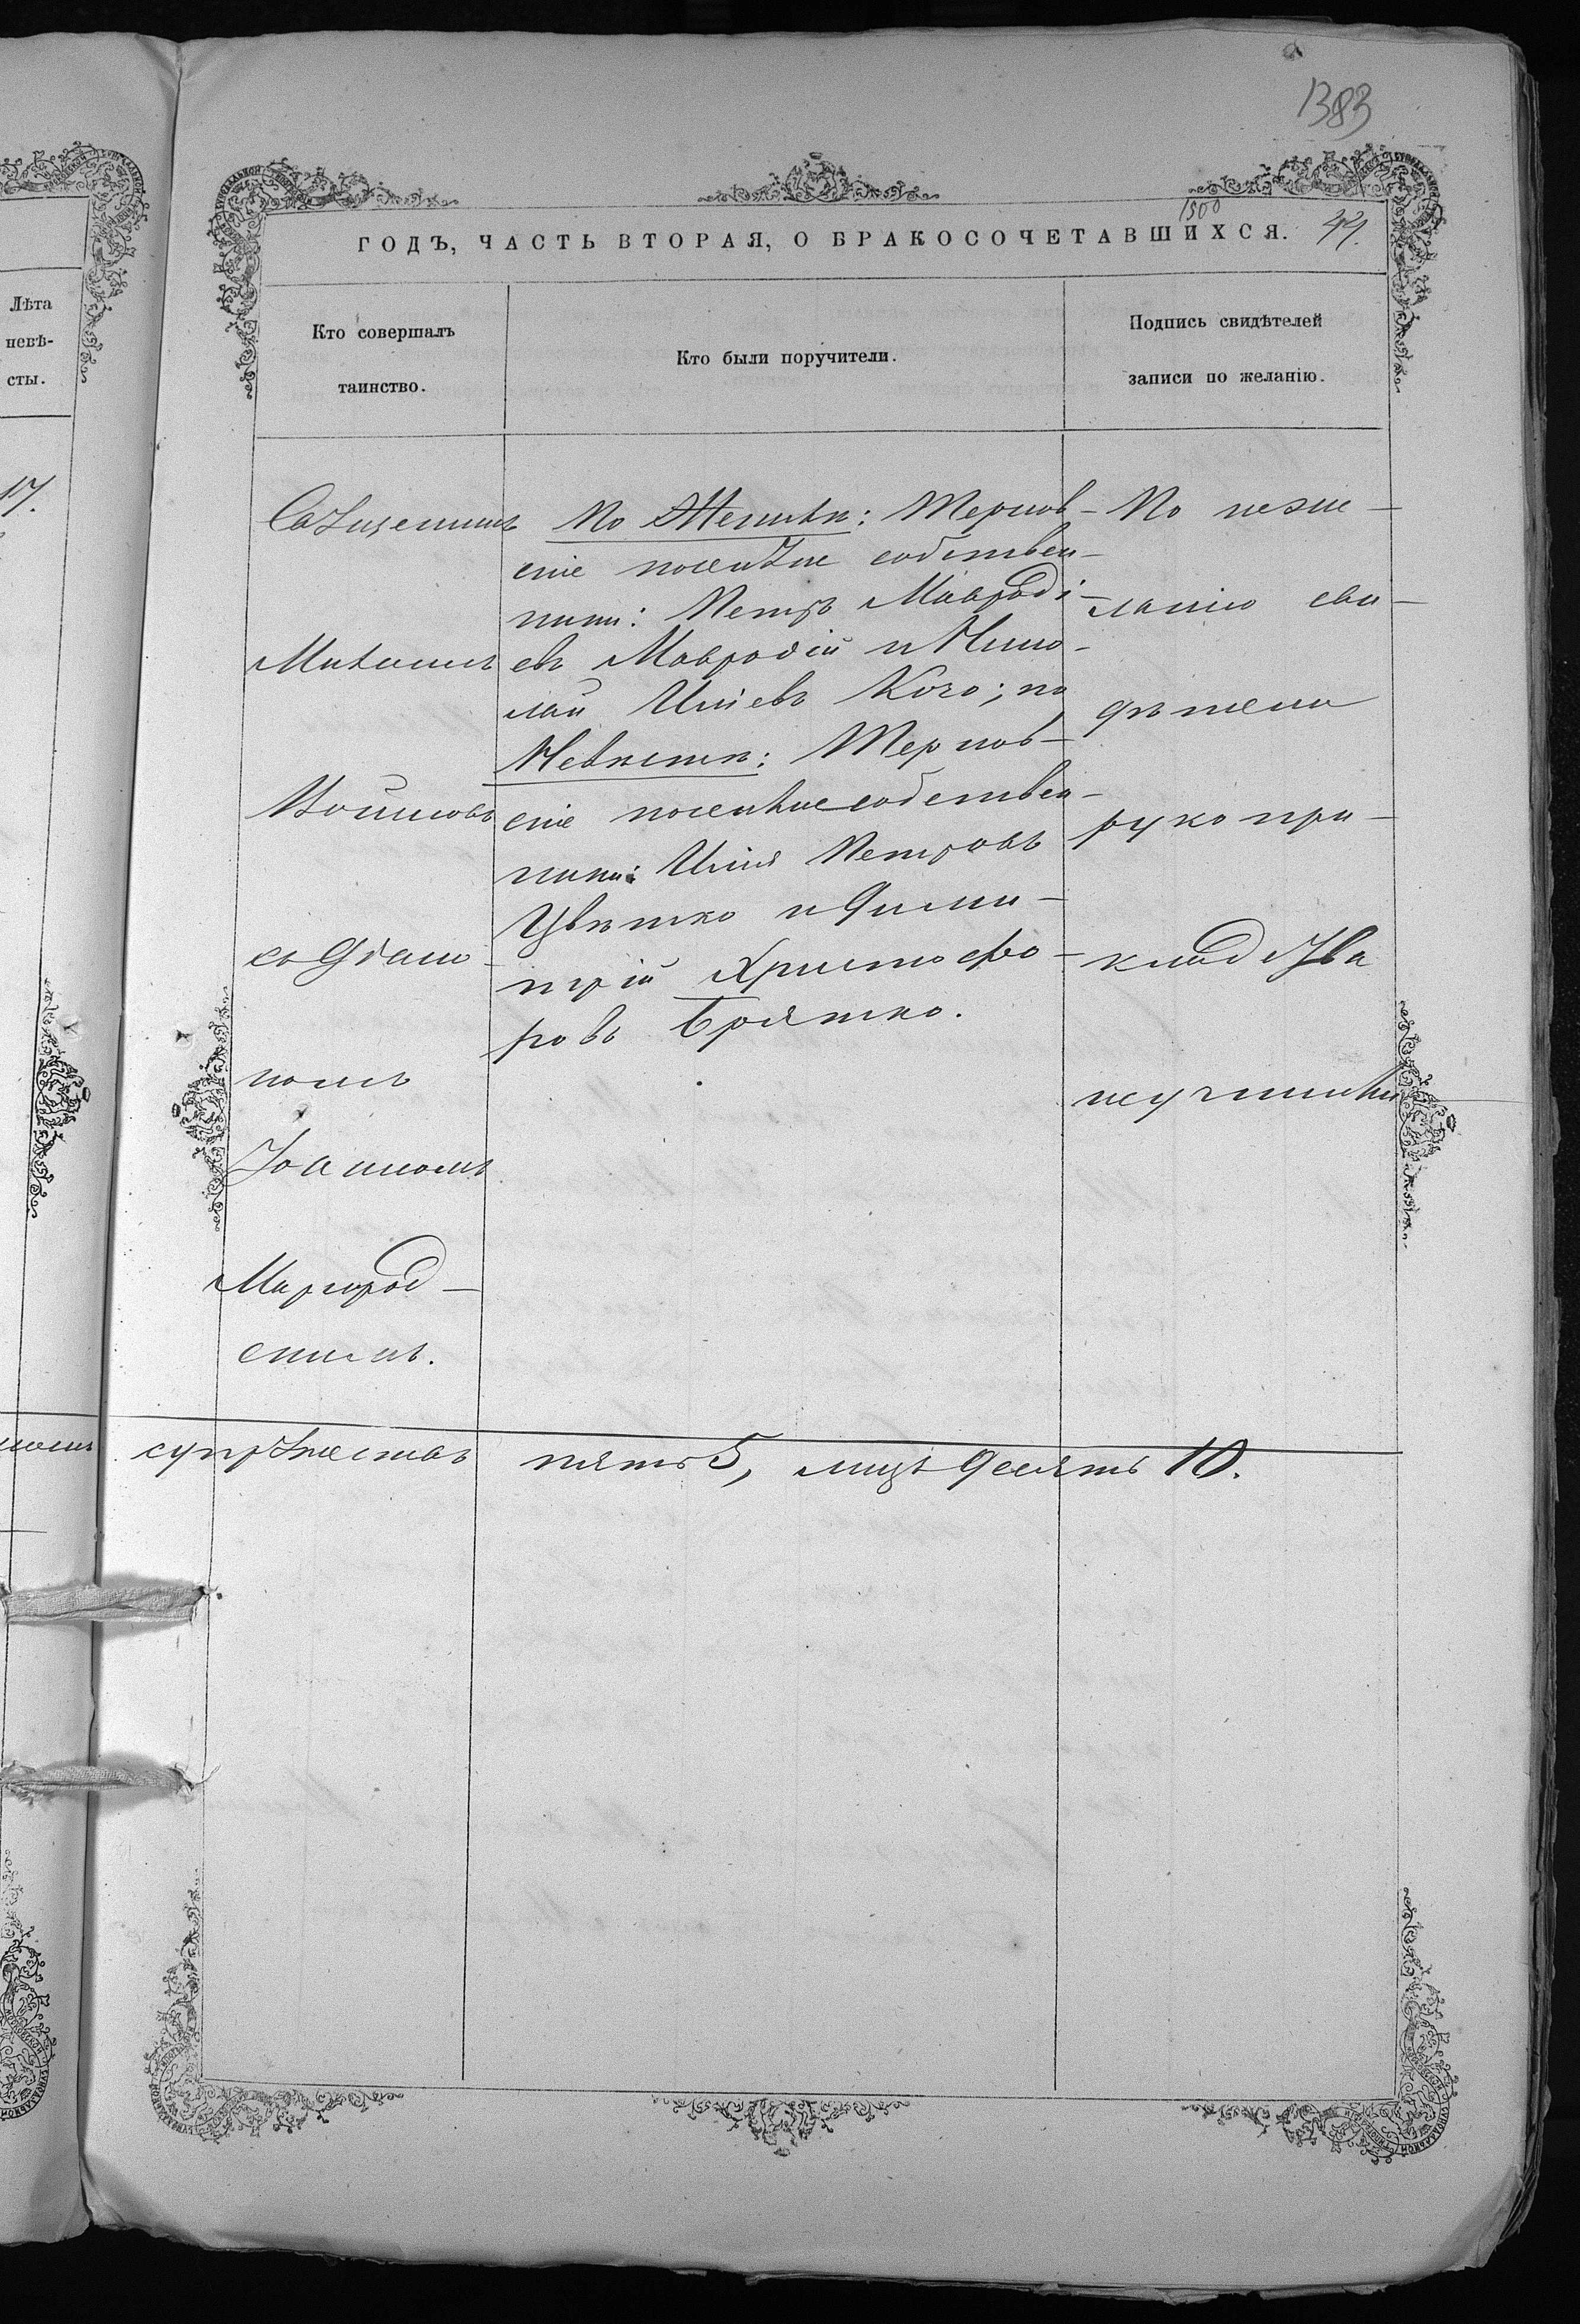 1383
1500
ГОДЪ, ЧАСТЬ ВТОРАЯ, О БРАКОСОЧЕТАВШИХСЯ.
Лѣта
невѣ-
сты.
17.
Кто совершалъ
таинство.
Кто были поручители.
Подпись свидѣтелей
записи по желанію.
Священникъ
Михаилъ
Войновъ
съ Діако-
номъ
Іоанномъ
Миргород-
скимъ.
По Женихѣ: Тернов-
скіе поселяне собствен-
ники: Петръ Мавродi-
евъ Мавродій и Нико-
лай Иліевъ Кого; по
Невѣстѣ: Тернов-
скіе поселяне собствен-
ники: Илія Петровъ
Цвѣтко и Дими-
трій Христофо-
ровъ Братко.
По неже-
ланію сви-
дѣтели
рукопри-
кладства
не учинили
супружествъ пять 5, лицъ десять 10.